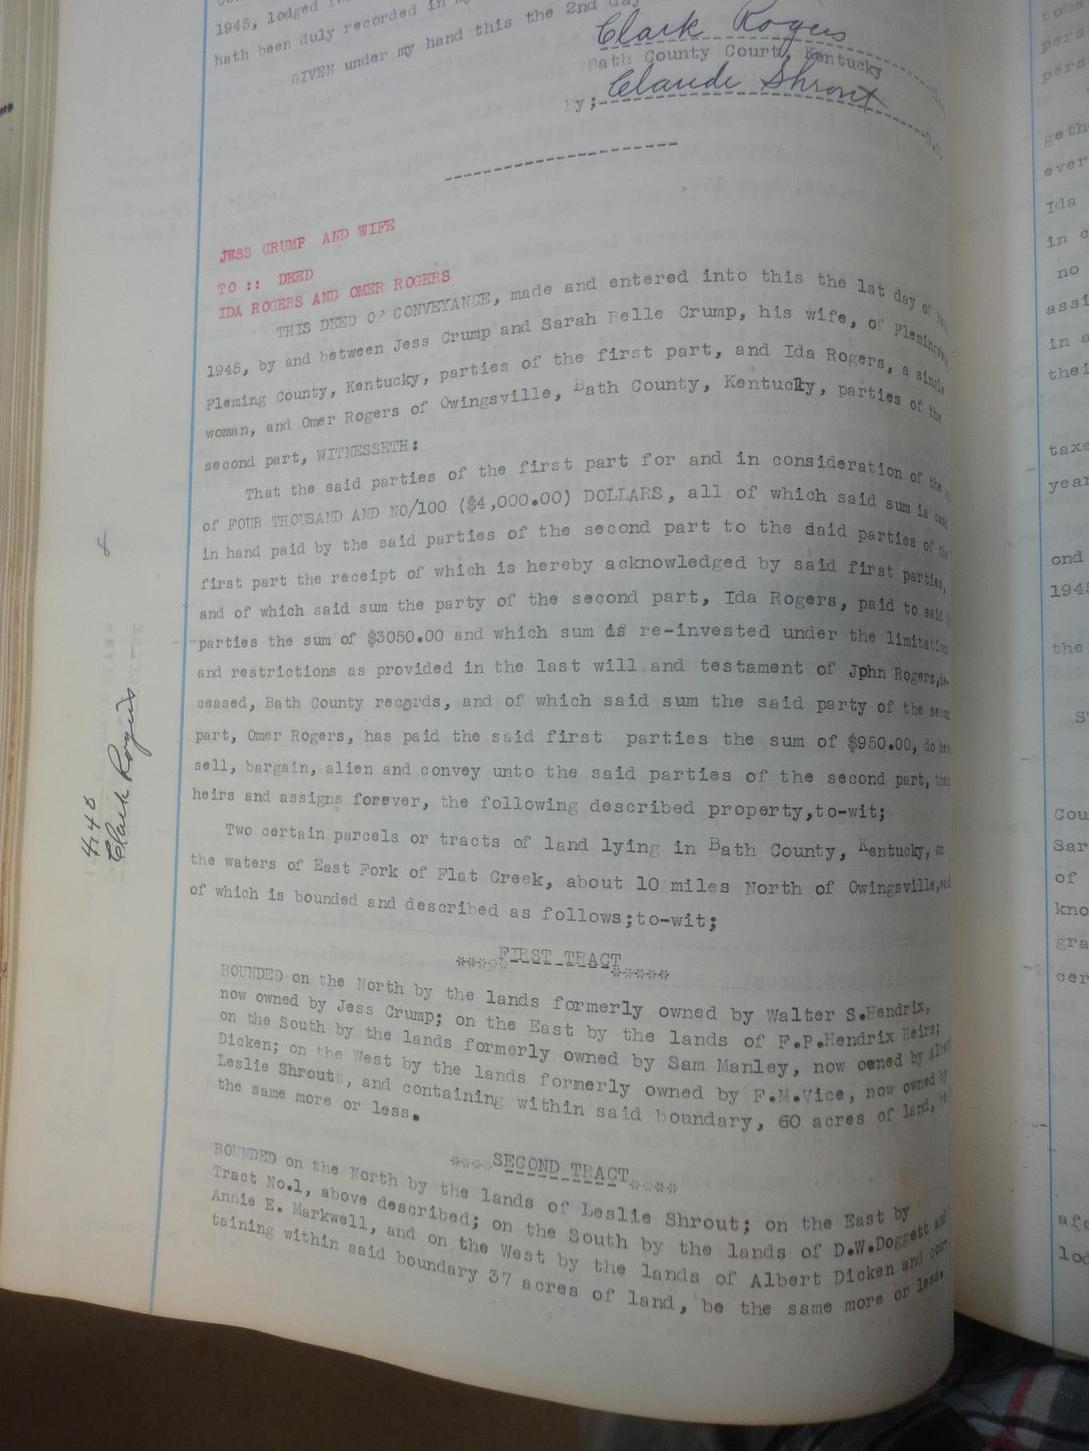 1945, lodged
hath been duly recorded in
GIVEN under my hand this the 2nd day
Clark Rogers
Bath County Court, Kentucky
By;- Claude Shrout D.C.
JESS CRUMP AND WIFE
TO :: DEED
IDA ROGERS AND OMER ROGERS
THIS DEED OF CONVEYANCE, made and entered into this the 1st day of
1945, by and between Jess Crump and Sarah Belle Crump, his wife, of Flemingsburg
Fleming County, Kentucky, parties of the first part, and Ida Rogers, a single
woman, and Omer Rogers of Owingsville, Bath County, Kentucky, parties of the
second part, WITNESSETH:
That the said parties of the first part for and in consideration of the
of FOUR THOUSAND AND NO/100 ($4,000.00) DOLLARS, all of which said sum is cash
in hand paid by the said parties of the second part to the daid parties of the
first part the receipt of which is hereby acknowledged by said first parties,
and of which said sum the party of the second part, Ida Rogers, paid to said
parties the sum of $3050.00 and which sum is re-invested under the limitations
and restrictions as provided in the last will and testament of Jphn Rogers, de-
ceased, Bath County records, and of which said sum the said party of the second
part, Omer Rogers, has paid the said first parties the sum of $950.00, do
sell, bargain, alien and convey unto the said parties of the second part, their
heirs and assigns forever, the following described property,to-wit;
Two certain parcels or tracts of land lying in Bath County, Kentucky, on
the waters of East Fork of Flat Creek, about 10 miles North of Owingsville, and
of which is bounded and described as follows;to-wit;
****FIRST TRACT*****
BOUNDED on the North by the lands formerly owned by Walter S.Hendrix,
now owned by Jess Crump; on the East by the lands of F.P.Hendrix Heirs;
on the South by the lands formerly owned by Sam Manley, now owned by Albert
Dicken; on the West by the lands formerly owned by F.M.Vice, now owned by
Leslie Shrout, and containing within said boundary, 60 acres of land, be
the same more or less.
****SECOND TRACT****
BOUNDED on the North by the lands of Leslie Shrout; on the East by
Tract No.1, above described; on the South by the lands of D.W.Doggett and
Annie E. Markwell, and on the West by the lands of Albert Dicken and con-
taining within said boundary 37 acres of land, be the same more or less.
Clark Rogers
geth
ever
Ida
in
no
assi
in a
thei
taxe
year
ond
the
Cou
Sar
of
kno
gra
cer